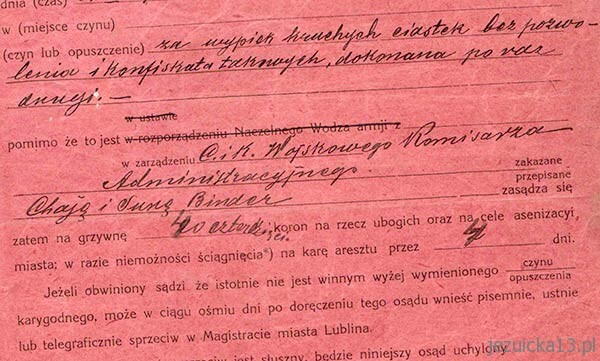 dnia (czas)
w (miejsce czynu)
(czyn lub opuszczenie) za wypiek kruchych ciastek bez pozwo-
lenia i konfiskata takowych, dokonana po raz
drugi. —
w ustawie
pomimo że to jest w rozporządzeniu Naczelnego Wodza armji z
w zarządzeniu C. i K. Wojskowego Komisarza
Administracyjnego. zakazane
przepisane
Chaję i Binder zasądza się
zatem na grzywnę 40 czterdzieści koron na rzecz ubogich oraz na cele asenizacyi
miasta; w razie niemożności ściągnięcia*) na karę aresztu przez 4 dni.
Jeżeli obwiniony sądzi, że istotnie nie jest winnym wyżej wymienionego czynu
opuszczenia
karygodnego, może w ciągu ośmiu dni po doręczeniu tego osądu wnieść pisemnie, ustnie
lub telegraficznie sprzeciw w Magistracie miasta Lublina.
jest słuszny, będzie niniejszy osąd uchylony
jezuicka13.pl